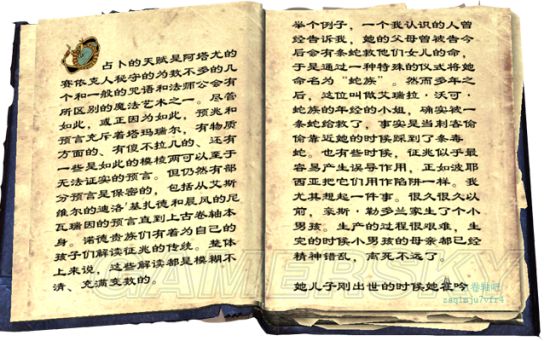 占卜的天赋是阿塔尤的
赛依克人秘守的为数不多的几
个和一般的咒语和法师公会有
所区别的魔法艺术之一。尽管
如此，或正因为如此，预兆和
预言充斥着塔玛瑞尔，有物质
方面的、有傻不拉几的、还有
一些是如此的模棱两可以至于
无法证实的预言。但仍然有部
分预言是保密的，包括从艾斯
维尔的速洛·基扎德和晨风的尼
瓦瑞因的预言直到上古卷轴本
身。诺德贵族们有着为自己的
孩子们解读征兆的传统。整体
上来说，这些解读都是模糊不
清、充满变数的。
举个例子，一个我认识的人曾
经告诉我，她的父母曾被告今
后会有条蛇救他们女儿的命，
于是通过一种特殊的仪式将她
命名为“蛇族”。然而多年之
后，这位叫做艾瑞拉·沃可·
蛇族的年经的小姐，确实被一
条蛇给救了，事实是当刺客偷
偷靠近她的时候踩到了条毒
蛇。也有些时候，征兆似乎最
容易产生误导作用，正如波耶
西亚把它们用作陷阱一样。我
尤其想起一件事。很久很久以
前，豪斯·勒多兰家生了个小
男孩。生产的过程很艰难，生
完的时候小男孩的母亲都已经
精神错乱，离死不远了。
她儿子刚出世的时候她在吟
GAMERSKY
卷轴吧
zaq1mju7vfr4